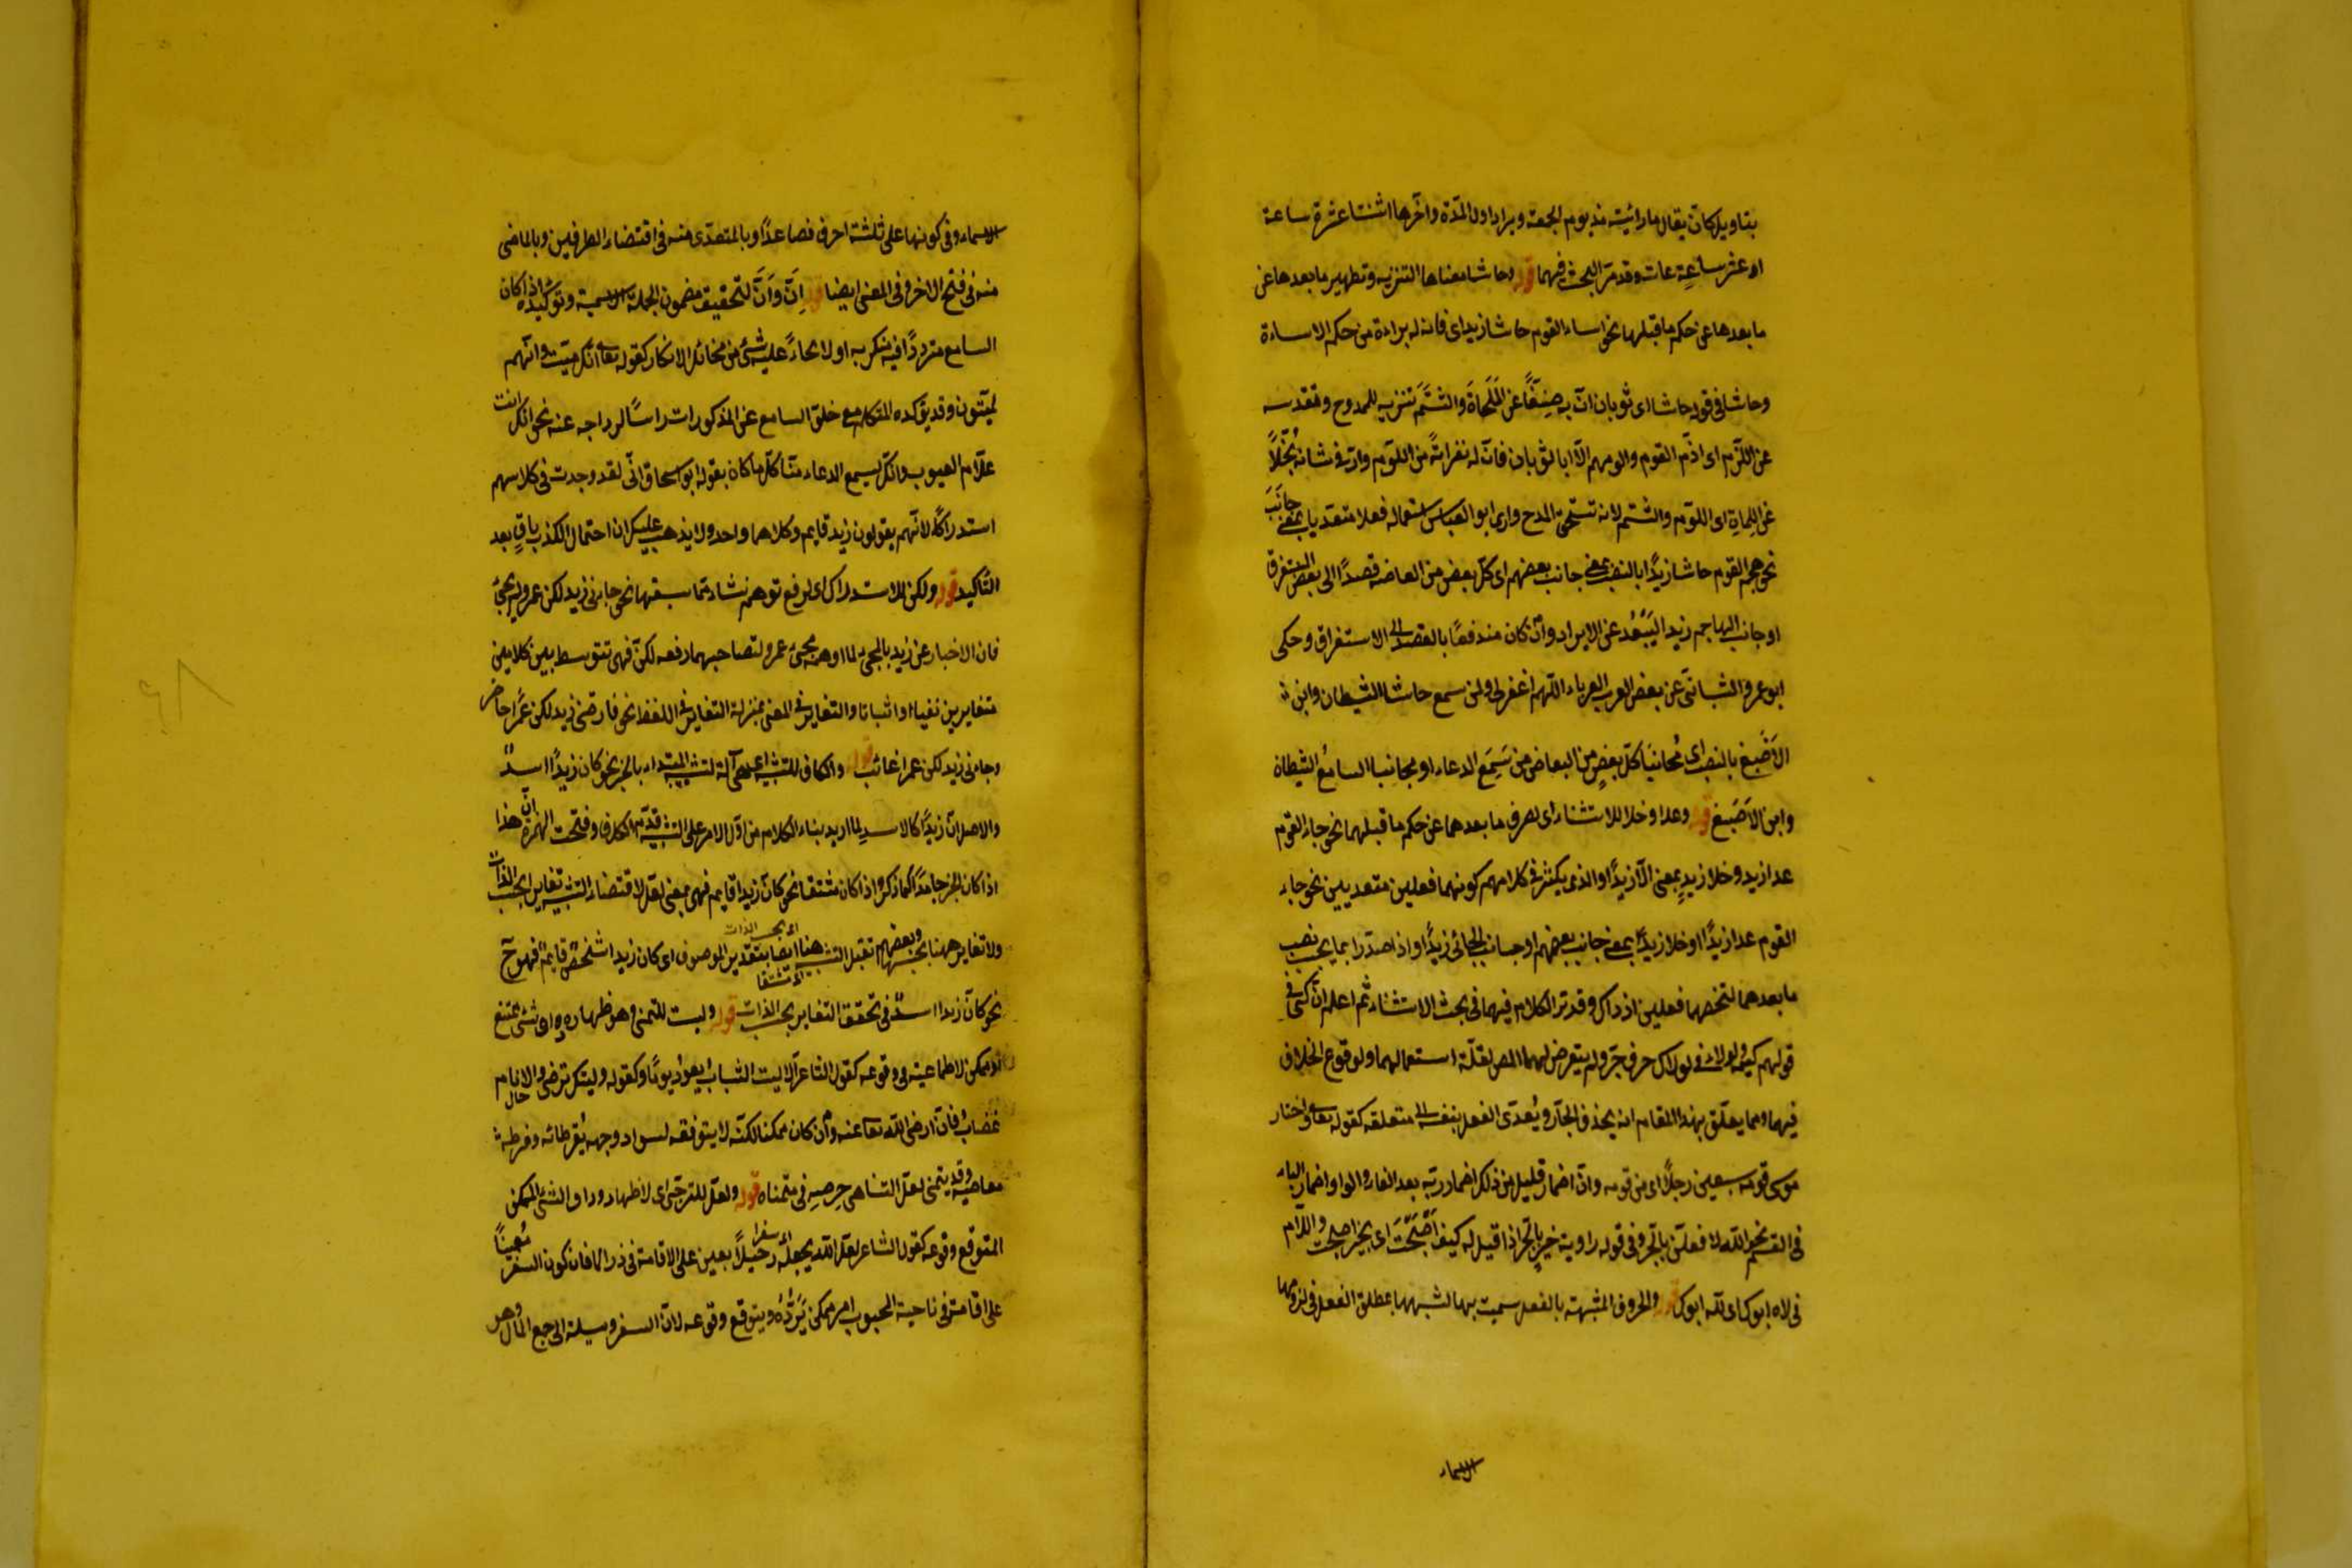 بتاويل كان يقال ما رايته منذ يوم الجمعة ويراد اول المدة وآخرها اثنتا عشرة ساعة
او عشر ساعات وقد مر البحث فيهما قوله وحاشا معناها التنزيه وتطهير ما بعدها عن
ما بعدها عن حكم ما قبلها نحو اساء القوم حاشا زيد اى فانه له براءة من حكم الاساءة
وحاشا فى قوله حاشا ابى ثوبان ان به ضنا عن الملحاة والشتم تنزيه للممدوح ومقدسه
عن اللوم اى اذم القوم والومهم الا ابا ثوبان فان له نفرانة من اللوم وان فى شانه بخلا
عن الملحاة اى اللوم والشتم لانه تستحق المدح وارى ابو العباس استعماله فعلا متعديا بمعنى جانب
نحو هجم القوم حاشا زيدا بالنصب بمعنى جانب بعضهم اى كل بعض من العاضه قصدا الى بعض المستغرق
او جانب الهاجم زيدا ليبعد عن الايراد وان كان مندفعا بالقصد الى الاستغراق وحكى
ابو عمرو الشيبانى عن بعض العرب العرباء اللهم اغفر لى ولمن سمع حاشا الشيطان وابن
الاصبغ بالنصب اى مجانبا كل بعض من ابعاض من سمع الدعاء او مجانبا السامع الشيطان
وابن الاصبغ قوله وعدا وخلا للاستثناء اى لصرف ما بعدهما عن حكم ما قبلهما نحو جاء القوم
عدا زيد وخلا زيد بمعنى الا زيدا والذى يكثر فى كلامهم كونهما فعلين متعديين نحو جاء
القوم عدا زيدا او خلا زيدا بمعنى جانب بعضهم او جانب الجائى زيدا واذا صدرا بما يجب نصب
ما بعدهما لتمحضهما فعلين اذ ذاك وقد مر الكلام فيهما فى بحث الاستثناء ثم اعلم ان كى فى
قولهم كيمه ولولا فى لولاك حرف جر ولم يتعرض لهما المص لقلة استعمالهما ولوقوع الخلاف
فيهما ومما يعلق بهذا المقام انه يحذف الجار ويعدى الفعل بنفسه الى متعلقه كقوله تعالى واختار
موسى قومه سبعين رجلا اى من قومه وان اضمار قليل من ذلك اضمار رب بعد الفاء والواو واضمار الباء
فى القسم نحو الله لافعلن بالجر وفى قوله راوية خير بالجر اذا قيل له كيف اصبحت اى بخير اصبحت واللام
فى لاه ابوك اى لله ابوك قوله والحروف المشبهة بالفعل سميت بها لشبهها بمطلق الفعل فى لزومها
الاسماء
الاسماء وفى كونها على ثلثة احرف فصاعدا وبالمتعدى منه فى اقتضاء الطرفين وبالماضى
منه فى فتح الاخر وفى المعنى ايضا قوله ان وان لتحقيق مضمون الجملة الاسمية وتوكيده اذا كان
السامع مترددا فيه منكر به او لايحاء عليه شئ من مخائل الانكار كقوله تعالى انك ميت وانهم
لميتون وقد يؤكده المتكلم مع خلو السامع عن المذكورات راسا لرواجه عنه نحو انك انت
علام الغيوب وانك لسميع الدعاء متاكلا ما كان بقوله ابو اسحاق انى لقد وجدت فى كلامهم
استدراكا لانهم يقولون زيد قايم وكلاهما واحد ولا يذهب عليك ان احتمال الكذب باق بعد
التاكيد قوله ولكن للاستدراك اى لرفع توهم نشاء مما سبقها نحو جاءنى زيد لكن عمرو لم يجئ
فان الاخبار عن زيد بالمجئ لما اوهم مجئ عمرو لتصاحبهما دفعه لكن فهى تتوسط بين كلامين
متغايرين نفيا او اثباتا والتغاير فى المعنى بمنزلة التغاير فى اللفظ نحو فارقنى زيد لكن عمرا حاضر
وجاءنى زيد لكن عمرا غائب قوله وكان للتشبيه اى هى آلة لتشبيه المبتداء بالخبر نحو كان زيدا اسد
والاصل ان زيدا كالاسد لما اريد بناء الكلام من اول الامر على التشبيه قدمها الكاف وفتحت الهمزة ان هذا
اذا كان الخبر جامدا كما ذكر واذا كان مشتقا نحو كان زيدا قايم فهى بمعنى لعل لاقتضاء التشبيه تغاير بحسب الذات
ولا تغاير ههنا بحسبها وبعضهم تقبل التشبيه هنا ايضا بتقدير الموصوف اى كان زيدا شخص قايم فهو ح
اى بحسب الذات
اى مشتقا
نحو كان زيدا اسد فى تحقق التغاير بحسب الذات قوله وليت للتمنى وهو اظهار وداد شئ ممتنع
او ممكن لا طماعية فى وقوعه كقول الشاعر الا ليت الشباب يعود يوما وكقوله وليتك ترضى والانام
غضاب فان ارضى الله تعالى عنه وان كان ممكنا لكنه لا يتوقعه لسواد وجهه بفرطاته وفرطه
معاصيه وقد يتمنى لعل التناهى حرصه فى متمناه قوله ولعل للترجى اى لاظهار وداد الشئ الممكن
المتوقع وقوعه كقول الشاعر لعل الله يجعله رحيلا يعين على الاقامة فى ذراك فان كون السفر معينا
اى سفرا
على اقامتى فى ناحية المحبوب امر ممكن يوده ويتوقع وقوعه لان السفر وسيلة الى جمع المال وهو